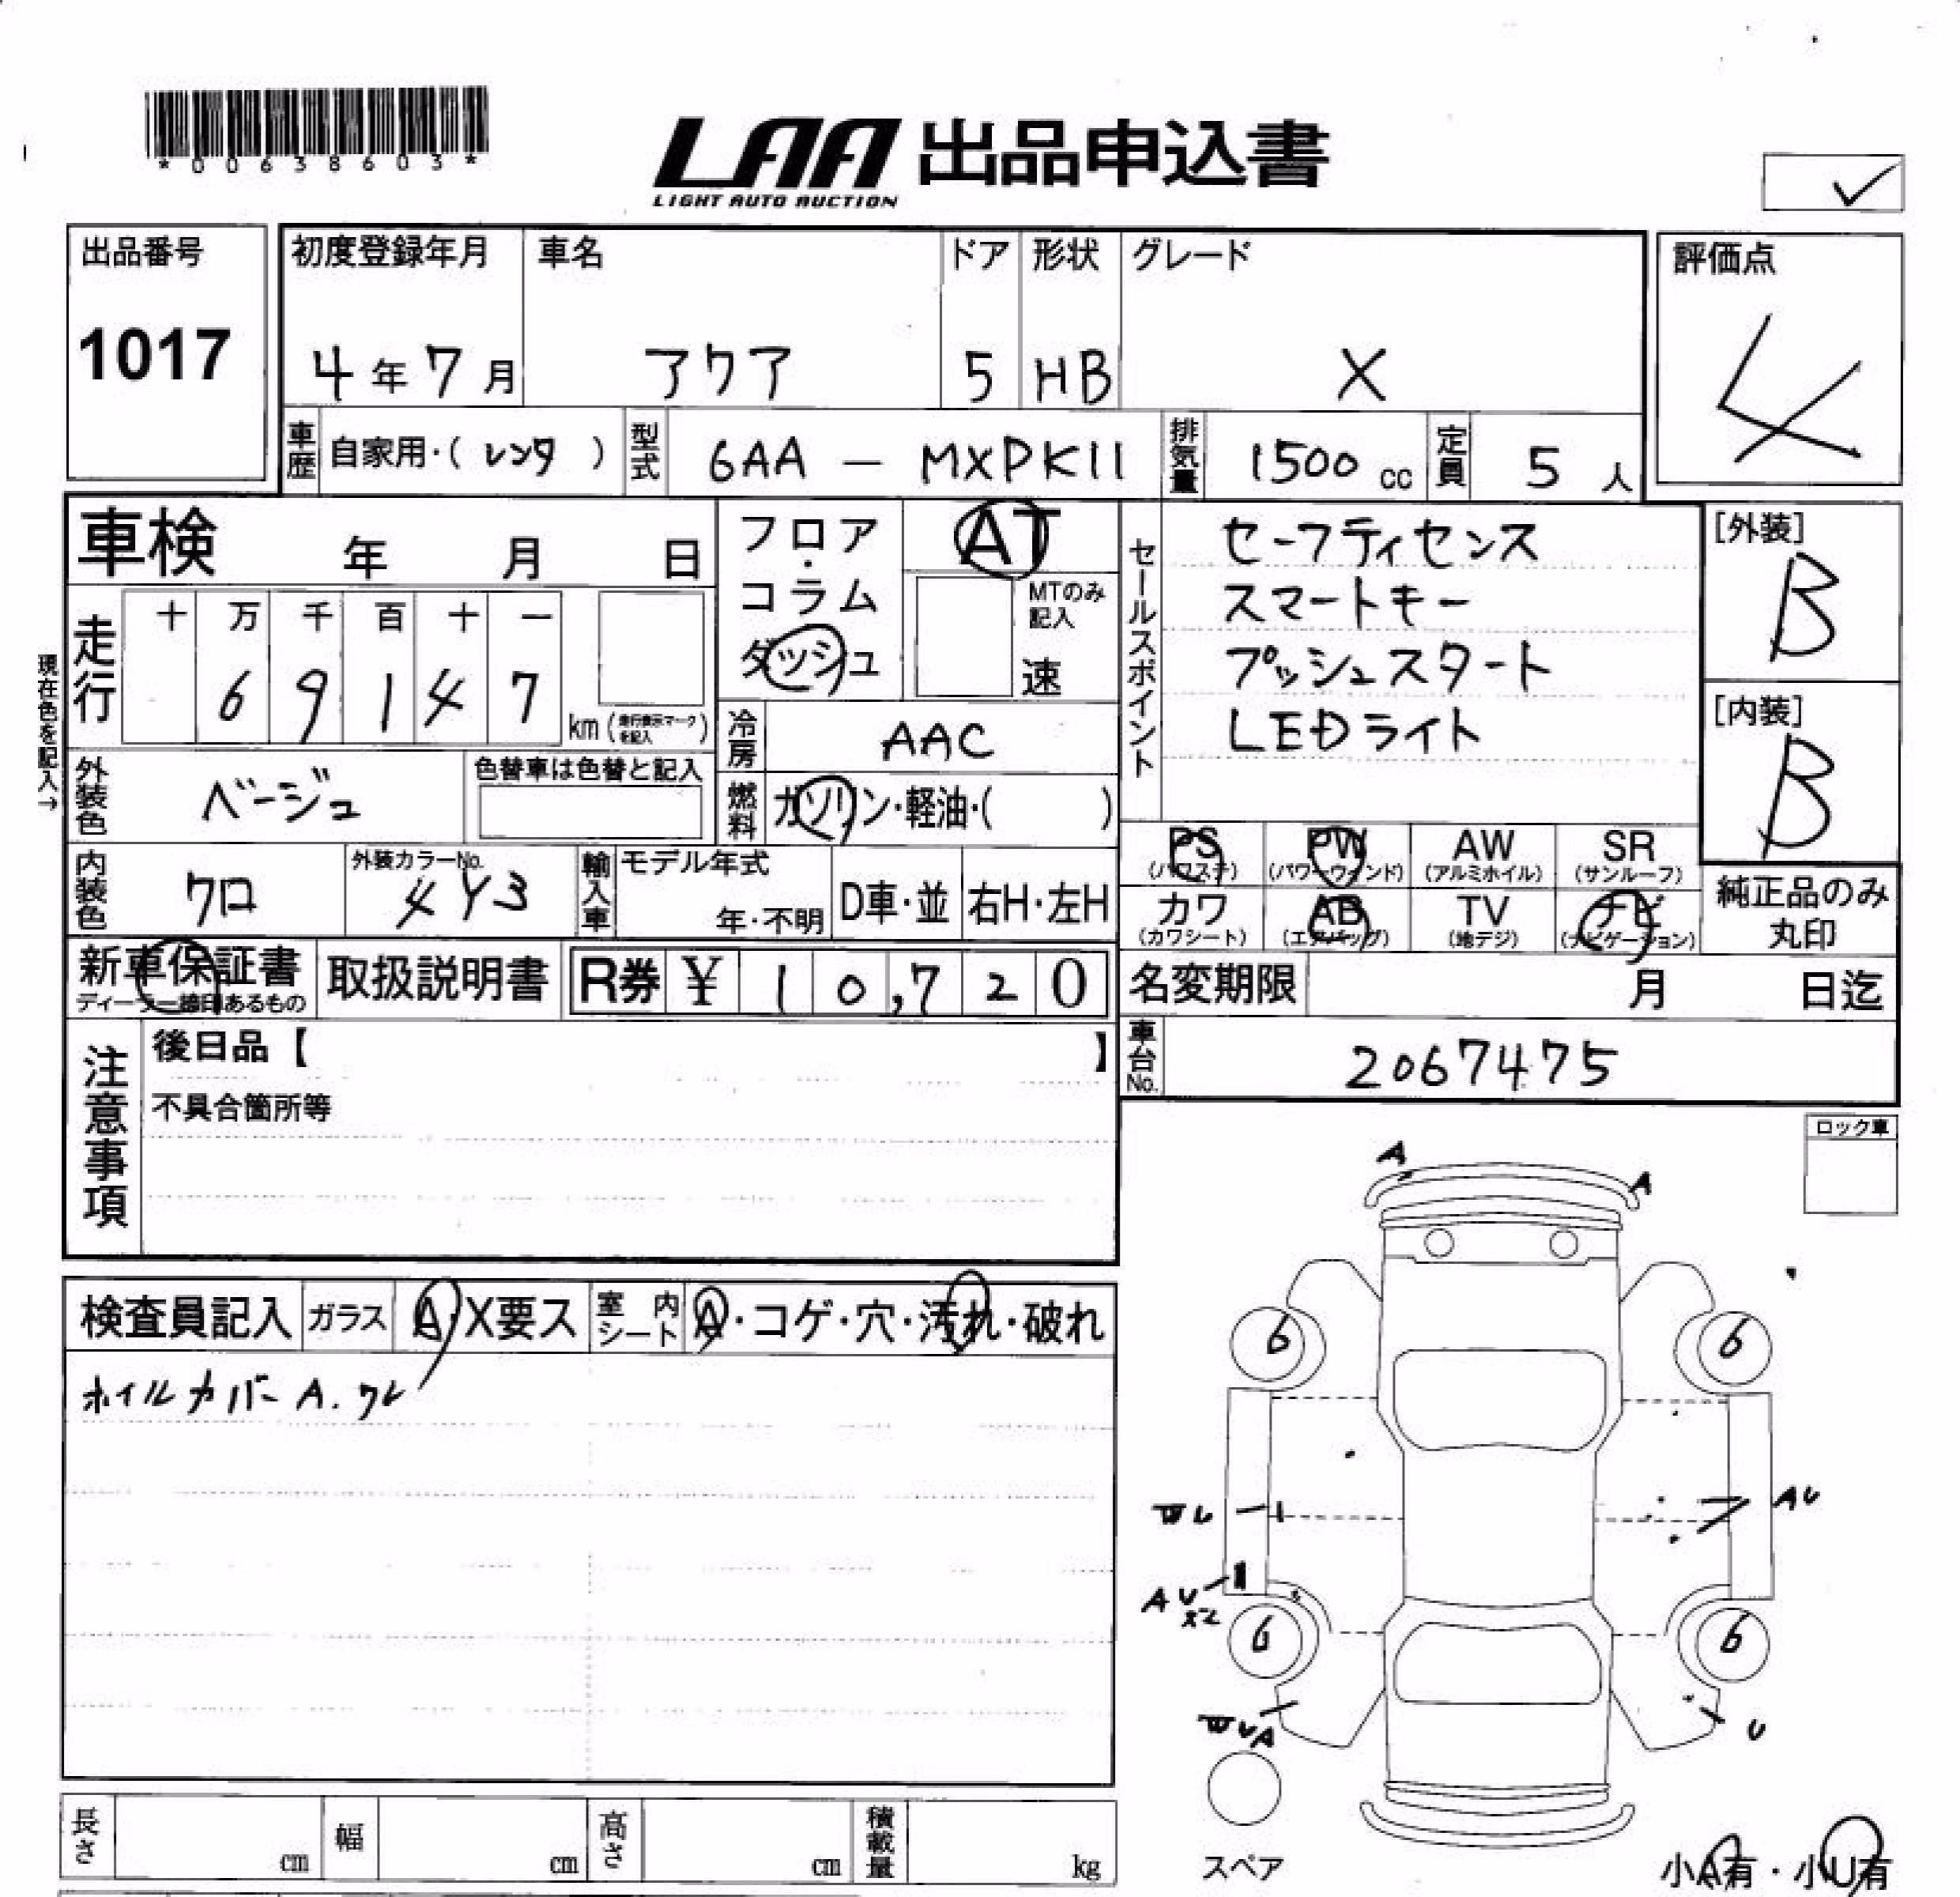 *00638603*
LAA 出品申込書
LIGHT AUTO AUCTION
出品番号
1017
初度登録年月
4年7月
車名
アクア
ドア
5
形状
HB
グレード
X
評価点
4
車歴 自家用・( レンタ )
型式 6AA — MXPK11
排気量 1500 cc
定員 5 人
車検 年 月 日
現在色を記入→
走行 十 万 千 百 十 一
6 9 1 4 7
km (走行表示マークを記入)
外装色 ベージュ
色替車は色替と記入
内装色 クロ
外装カラーNo.
4Y3
輸入車 モデル年式
年・不明
D車・並 右H・左H
フロア・コラム
ダッシュ
AT
MTのみ記入
速
冷房 AAC
燃料 ガソリン・軽油・( )
セールスポイント
セーフティセンス
スマートキー
プッシュスタート
LEDライト
[外装]
B
[内装]
B
PS (パワステ)
PW (パワーウインド)
AW (アルミホイル)
SR (サンルーフ)
カワ (カワシート)
AB (エアバッグ)
TV (地デジ)
ナビ (ナビゲーション)
純正品のみ
丸印
新車保証書
ディーラー捺印あるもの
取扱説明書
R券 ¥ 10,720
名変期限 月 日迄
車台No. 2067475
注意事項
後日品【 】
不具合箇所等
ロック車
検査員記入 ガラス A・X要ス
室内シート A・コゲ・穴・汚れ・破れ
ホイルカバー A.ワレ
A
A
6
6
WU
AU
AU
6
6
WUA
U
スペア
小A有・小U有
長さ cm
幅 cm
高さ cm
積載量 kg